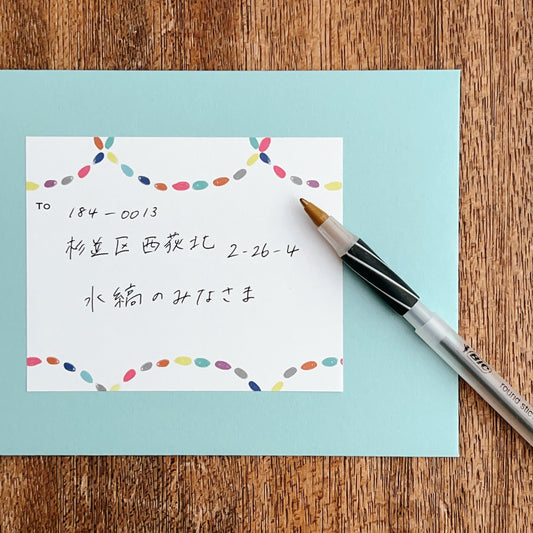 TO
184-0013
杉並区西荻北 2-26-4
水縞のみなさま
BIC
round stic